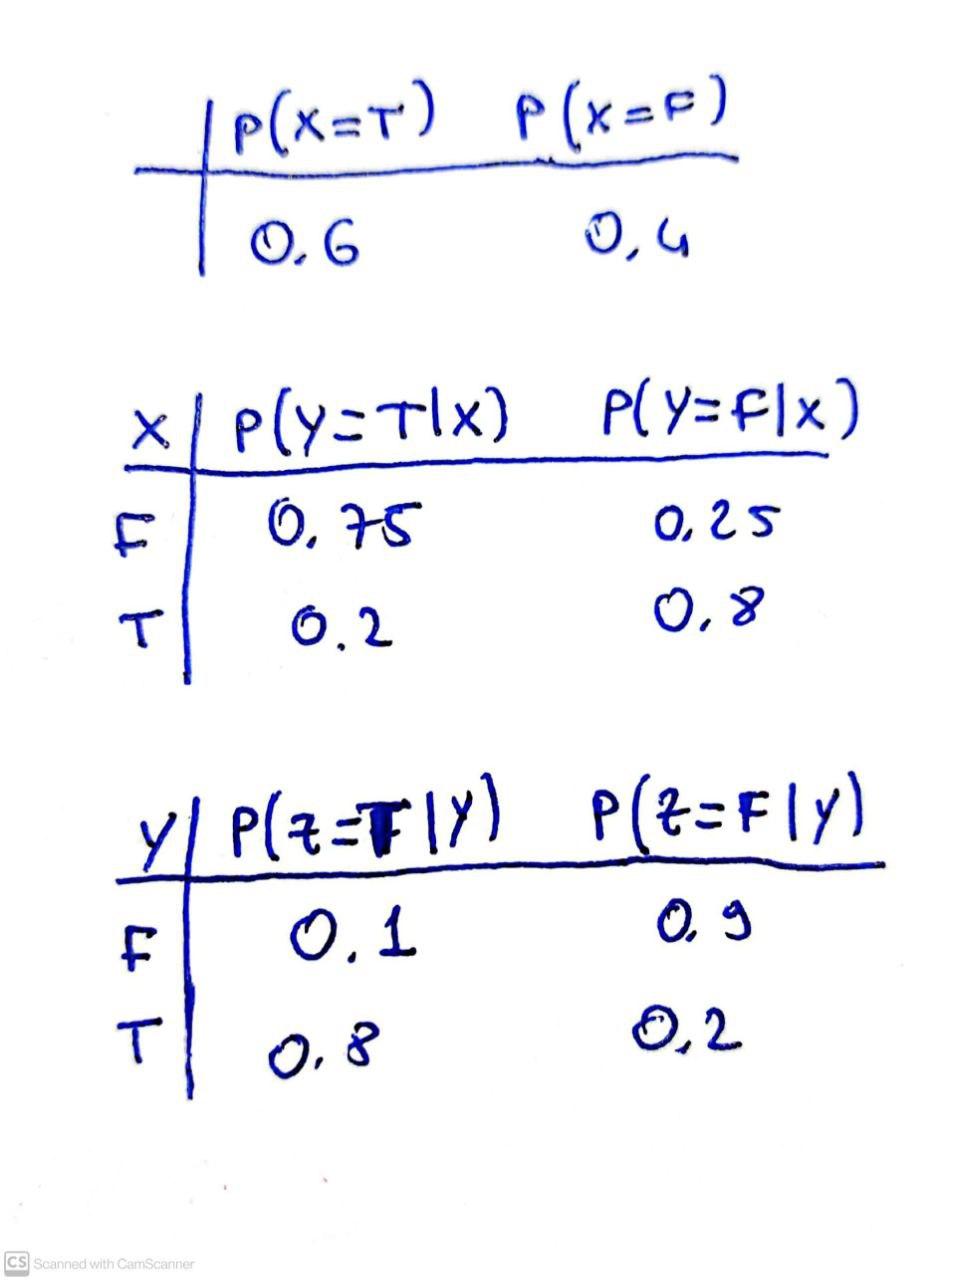 P(X=T) P(X=F)
0.6 0,4
X P(Y=T|X) P(Y=F|X)
F 0.75 0.25
T 0.2 0,8
Y P(Z=T|Y) P(Z=F|Y)
F 0.1 0.9
T 0.8 0,2
CS Scanned with CamScanner